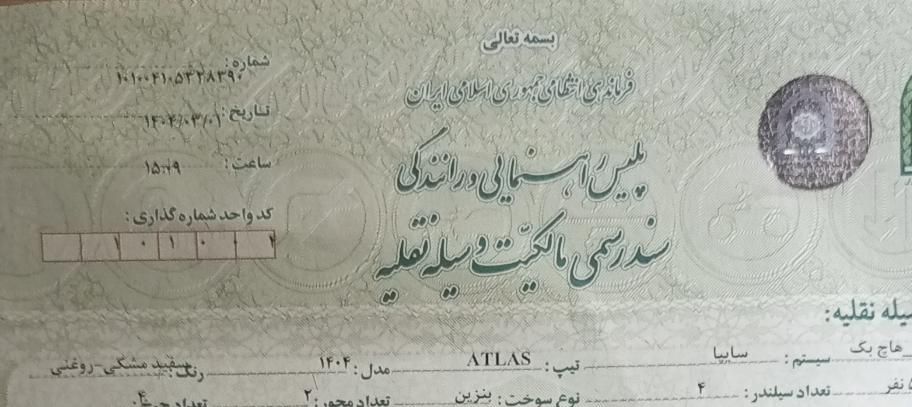 بسمه تعالی
فرماندهی انتظامی جمهوری اسلامی ایران
پلیس راهنمایی و رانندگی
سند رسمی مالکیت وسیله نقلیه
شماره: ۱۰۱۰۰۴۱۰۵۳۲۸۳۹۰
تاریخ: ۱۴۰۴/۰۳/۰۱
ساعت:
کد واحد شماره گذاری:
یله نقلیه:
هاچ بک سیستم: سایپا تیپ: ATLAS مدل: ۱۴۰۴ رنگ: سفید مشکی-روغنی
نفر تعداد سیلندر: ۴ نوع سوخت: بنزین تعداد محور: ۲ تعداد